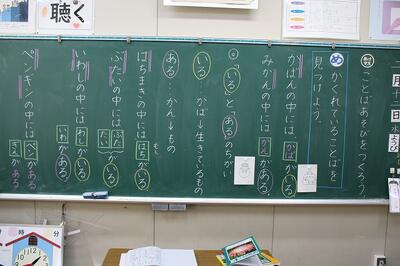 聴く
ことばあそびをつくろう
め かくれていることばを
見つけよう。
かばんの中には かば が いる
みかんの中には かん が ある
◎「いる」と「ある」のちがい
いる … かば→生きているもの
ある … かん→もの
はちまきの中には はち が いる
ぶたいの中には ぶた が いる
たい
いわしの中には いわ が ある
ペンギンの中には ペン が ある
ぎん が ある
月
日
水
時
分